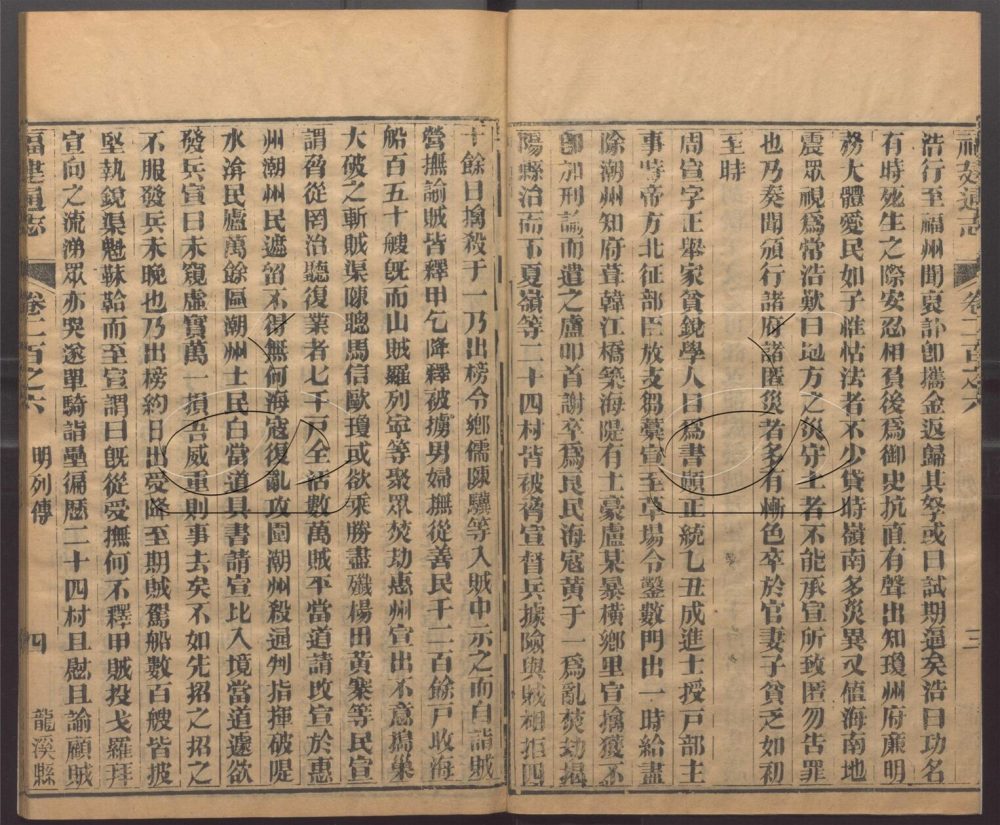 福建通志
卷二百之六
三
浩行至福州聞哀訃卽攜金返歸其孥或曰試期逼矣浩曰功名
有時死生之際安忍相負後爲御史抗直有聲出知瓊州府廉明
務大體愛民如子惟怙法者不少貸時嶺南多災異又値海南地
震眾視爲常浩歎曰地方之災守土者不能承宣所致匿勿告罪
也乃奏聞頒行諸府諸匿災者多有慚色卒於官妻子貧乏如初
至時
周宣字正舉家貧銳學人日爲書願正統乙丑成進士授戸部主
事時帝方北征部臣放支芻藁宣至草場令鑿數門出一時給盡
除潮州知府葺韓江橋築海隄有土豪盧某暴橫鄉里宣擒獲不
卽加刑諭而遣之盧叩首謝卒爲民民海寇黃于一爲亂焚劫揭
陽縣治而下夏嶺等二十四村皆被脅宣督兵據險與賊相拒四
十餘日擒殺于一乃出榜令鄉儒陳驥等入賊中示之而自詣賊
營撫諭賊皆釋甲乞降釋破虜男婦撫從善民千二百餘戸收海
船百五十艘旣而山賊羅列寧等聚眾焚劫惠州宣出不意搗巢
大破之斬賊渠陳聰馬信歐瓊或欲乘勝盡殲楊田黃寨等民宣
謂脅從罔治聽復業者七千戸全活數萬賊平當道請改宣於惠
州潮州民遮留不得無何海寇復亂攻圍潮州殺通判指揮破隄
水渰民廬萬餘區潮州士民白當道具書請宣比入境當道遽欲
發兵宣曰未窺虛實萬一損吾威重則事去矣不如先招之招之
不服發兵未晚也乃出榜約日出受降至期賊駕船數百艘皆披
堅執銳渠魁靺鞈而至宣謂曰旣從受撫何不釋甲賊投戈羅拜
宣向之流涕眾亦哭遂單騎詣壘徧歷二十四村且慰且諭顧賊
福建通志
卷二百之六
明列傳
四
龍溪縣